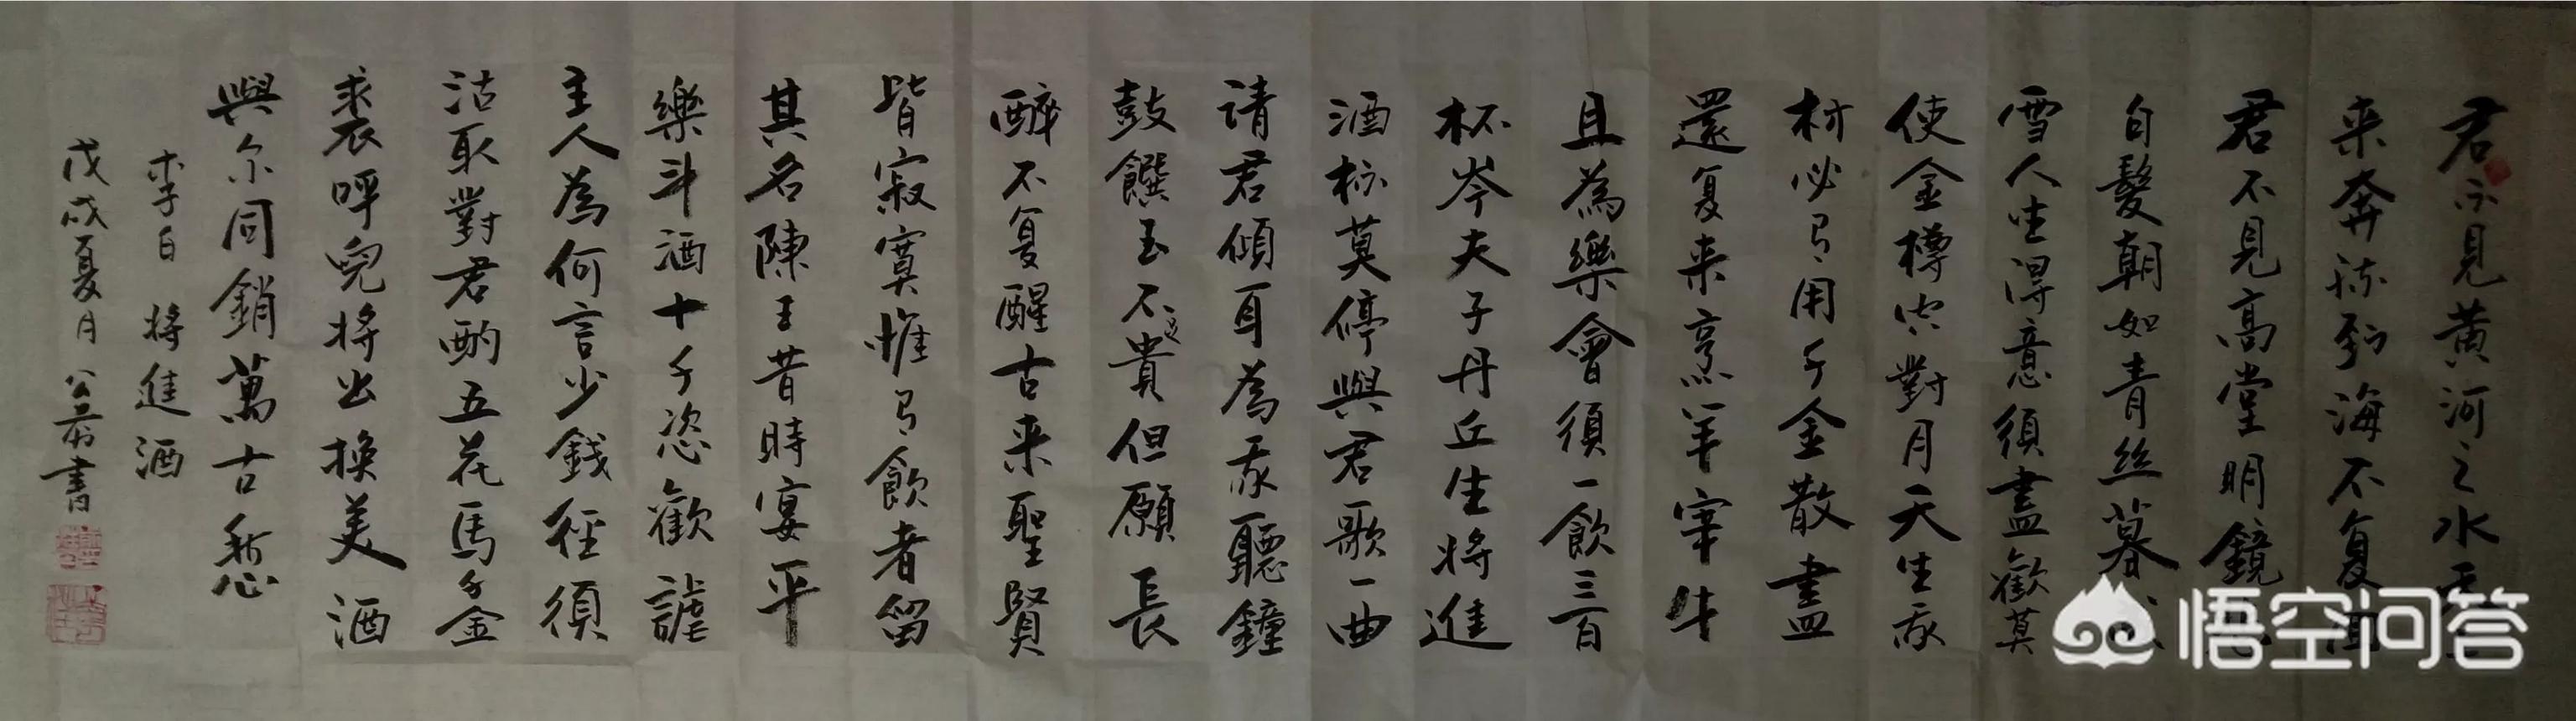 君不見黃河之水天上
来奔流到海不复回
君不見高堂明鏡
白髮朝如青丝暮
雪人生得意須盡歡莫
使金樽空對月天生我
材必有用千金散盡
還复来烹羊宰牛
且為樂會須一飲三百
杯岑夫子丹丘生将進
酒杯莫停與君歌一曲
请君傾耳為我聽鐘
鼓饌玉不足貴但願長
醉不复醒古来聖賢
皆寂寞惟有飲者留
其名陳王昔時宴平
樂斗酒十千恣歡謔
主人為何言少錢徑須
沽取對君酌五花馬千金
裘呼兒将出換美酒
與尔同銷萬古愁
李白 将進酒
戊戌夏月 书
悟空问答